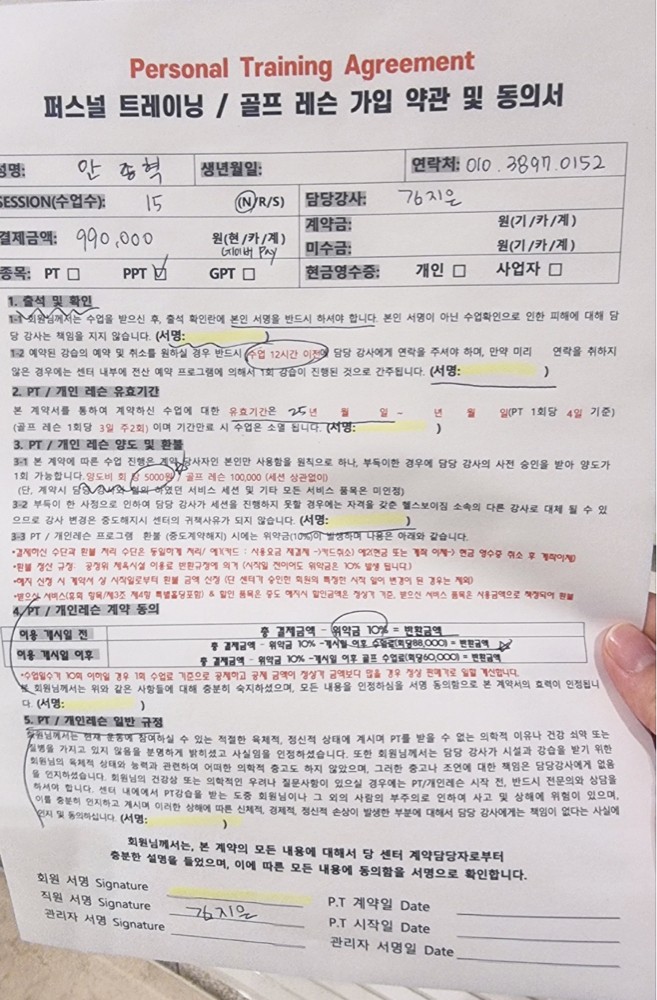 Personal Training Agreement
퍼스널 트레이닝 / 골프 레슨 가입 약관 및 동의서
성명: 안종혁 생년월일: 연락처: 010.3897.0152
SESSION(수업수): 15 (N/R/S) 담당강사: 김지은
계약금: 원(기/카/계)
결제금액: 990,000 원(현/카/계) 네이버 Pay
미수금: 원(기/카/계)
종목: PT □ PPT ☑ GPT □ 현금영수증: 개인 □ 사업자 □
1. 출석 및 확인
1-1 회원님께서는 수업을 받으신 후, 출석 확인란에 본인 서명을 반드시 하셔야 합니다. 본인 서명이 아닌 수업확인으로 인한 피해에 대해 담
당 강사는 책임을 지지 않습니다. (서명: )
1-2 예약된 강습의 예약 및 취소를 원하실 경우 반드시 수업 12시간 이전에 담당 강사에게 연락을 주셔야 하며, 만약 미리 연락을 취하지
않은 경우에는 센터 내부에 전산 예약 프로그램에 의해서 1회 강습이 진행된 것으로 간주됩니다. (서명: )
2. PT / 개인 레슨 유효기간
본 계약서를 통하여 계약하신 수업에 대한 유효기간은 25년 월 일 ~ 년 월 일(PT 1회당 4일 기준)
(골프 레슨 1회당 3일 주2회) 이며 기간만료 시 수업은 소멸 됩니다. (서명: )
3. PT / 개인 레슨 양도 및 환불
3-1 본 계약에 따른 수업 진행은 계약 당사자인 본인만 사용함을 원칙으로 하나, 부득이한 경우에 담당 강사의 사전 승인을 받아 양도가
1회 가능합니다. 양도비 회당 5000원 / 골프 레슨 100,000 (세션 상관없이)
(단, 계약시 담당 강사와 협의 하였던 서비스 세션 및 기타 모든 서비스 품목은 미인정)
3-2 부득이 한 사정으로 인하여 담당 강사가 세션을 진행하지 못할 경우에는 자격을 갖춘 헬스보이짐 소속의 다른 강사로 대체 될 수 있
으므로 강사 변경은 중도해지시 센터의 귀책사유가 되지 않습니다. (서명: )
3-3 PT / 개인레슨 프로그램 환불 (중도계약해지) 시에는 위약금(10%)이 발생하며 내용은 아래와 같습니다.
*결제하신 수단과 환불 처리 수단은 동일하게 처리/ 예)카드 : 사용요금 재결제 ->카드취소) 예)현금 또는 계좌 이체-> 현금 영수증 취소 후 계좌이체)
*환불 정산 규정: 공정위 체육시설 이용료 반환규정에 의거 (시작일 전이어도 위약금은 10% 발생 됩니다.)
*해지 신청 시 계약서 상 시작일로부터 환불 금액 산정 (단 센터가 승인한 회원의 특정한 시작 일이 변경이 된 경우는 제외)
*받으신 서비스(휴회 항목/제3조 제4항 특별홀딩포함) & 할인 품목은 중도 해지시 할인금액은 정상가 기준, 받으신 서비스 품목은 사용금액으로 책정되어 환불
4. PT / 개인레슨 계약 동의
이용 개시일 전 총 결제금액 - 위약금 10% = 반환금액
이용 개시일 이후 총 결제금액 - 위약금 10% -개시일 이후 수업료(회당88,000) = 반환금액
총 결제금액 - 위약금 10% -개시일 이후 골프 수업료(회당60,000) = 반환금액
*수업일수가 10회 이하일 경우 1회 수업료 기준으로 공제하고 공제 금액이 정상가 금액보다 많을 경우 정상 판매가로 일할 계산합니다.
본 회원님께서는 위와 같은 사항들에 대해 충분히 숙지하셨으며, 모든 내용을 인정하심을 서명 동의함으로 본 계약서의 효력이 인정됩니
다. (서명: )
5. PT / 개인레슨 일반 규정
회원님께서는 현재 운동에 참여하실 수 있는 적절한 육체적, 정신적 상태에 계시며 PT를 받을 수 없는 의학적 이유나 건강 쇠약 또는
질병을 가지고 있지 않음을 분명하게 밝히셨고 사실임을 인정하셨습니다. 또한 회원님께서는 담당 강사가 시설과 강습을 받기 위한
회원님의 육체적 상태와 능력과 관련하여 어떠한 의학적 충고도 하지 않았으며, 그러한 충고나 조언에 대한 책임은 담당강사에게 없음
을 인지하셨습니다. 회원님의 건강상 또는 의학적인 우려나 질문사항이 있으실 경우에는 PT/개인레슨 시작 전, 반드시 전문의와 상담을
하셔야 합니다. 센터 내에에서 PT강습을 받는 도중 회원님이나 그 외의 사람의 부주의로 인하여 사고 및 상해에 위험이 있으며,
이를 충분히 인지하고 계시며 이러한 상해에 따른 신체적, 경제적, 정신적 손상이 발생한 부분에 대해서 담당 강사에게는 책임이 없다는 사실에
인지 및 동의하십니다. (서명: )
회원님께서는, 본 계약의 모든 내용에 대해서 당 센터 계약담당자로부터
충분한 설명을 들었으며, 이에 따른 모든 내용에 동의함을 서명으로 확인합니다.
회원 서명 Signature P.T 계약일 Date
직원 서명 Signature 김지은 P.T 시작일 Date
관리자 서명 Signature 관리자 서명일 Date